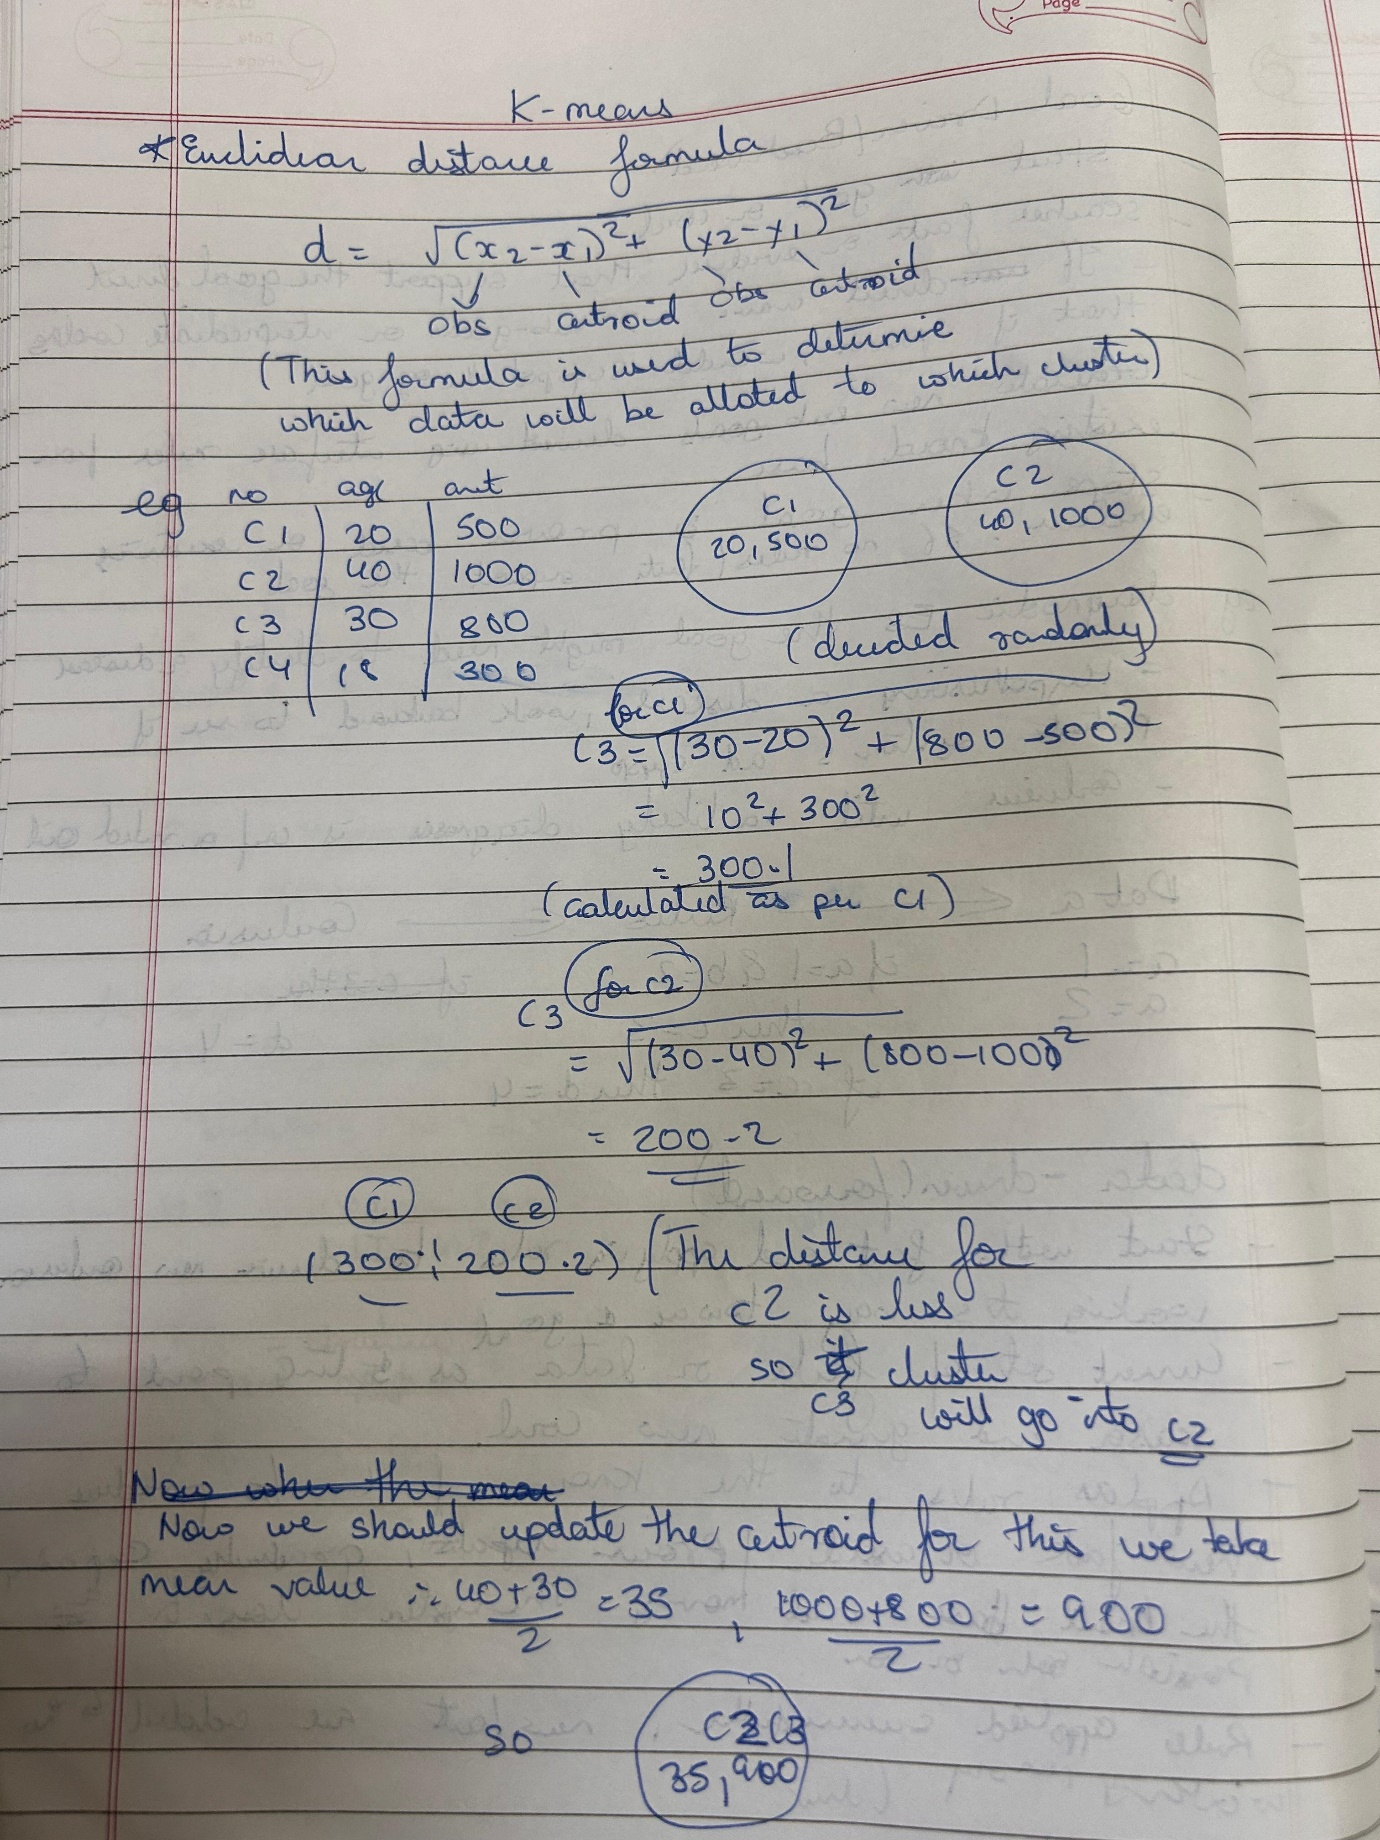 Page
K-means
* Euclidean distance formula
d = √(x2-x1)²+ (y2-y1)²
obs centroid obs centroid
(This formula is used to determine
which data will be alloted to which cluster)
eg no age amt
C1 20 500
C2 40 1000
C3 30 800
C4 18 300
C1
20, 500
C2
40, 1000
(decided randomly)
for C1
C3 = √(30-20)² + (800-500)²
= 10² + 300²
= 300.1
(calculated as per C1)
for C2
C3
= √(30-40)² + (800-1000)²
= 200.2
C1 C2
(300.1 200.2) (The distance for
C2 is less
so cluster
C3 will go into C2
Now when the mean
Now we should update the centroid for this we take
mean value ∴ 40+30/2 = 35 , 1000+800/2 = 900
so C2C3
35, 900